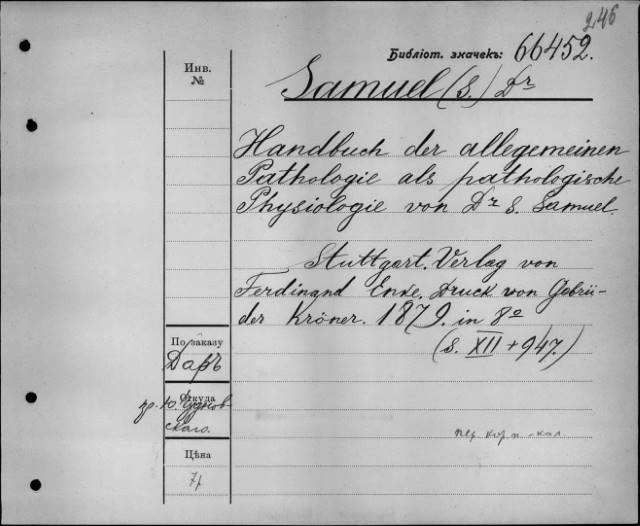 246
Библіот. значекъ: 66452.
Инв.
№
Samuel (S.) Dr
Handbuch der allegemeinen
Pathologie als pathologische
Physiologie von Dr S. Samuel.
Stuttgart. Verlag von
Ferdinand Enke. Druck von Gebrü-
der Kröner. 1879. in 8o
(S. XII + 947.)
По заказу
Даръ
Откуда
скаго.
Цѣна
7р